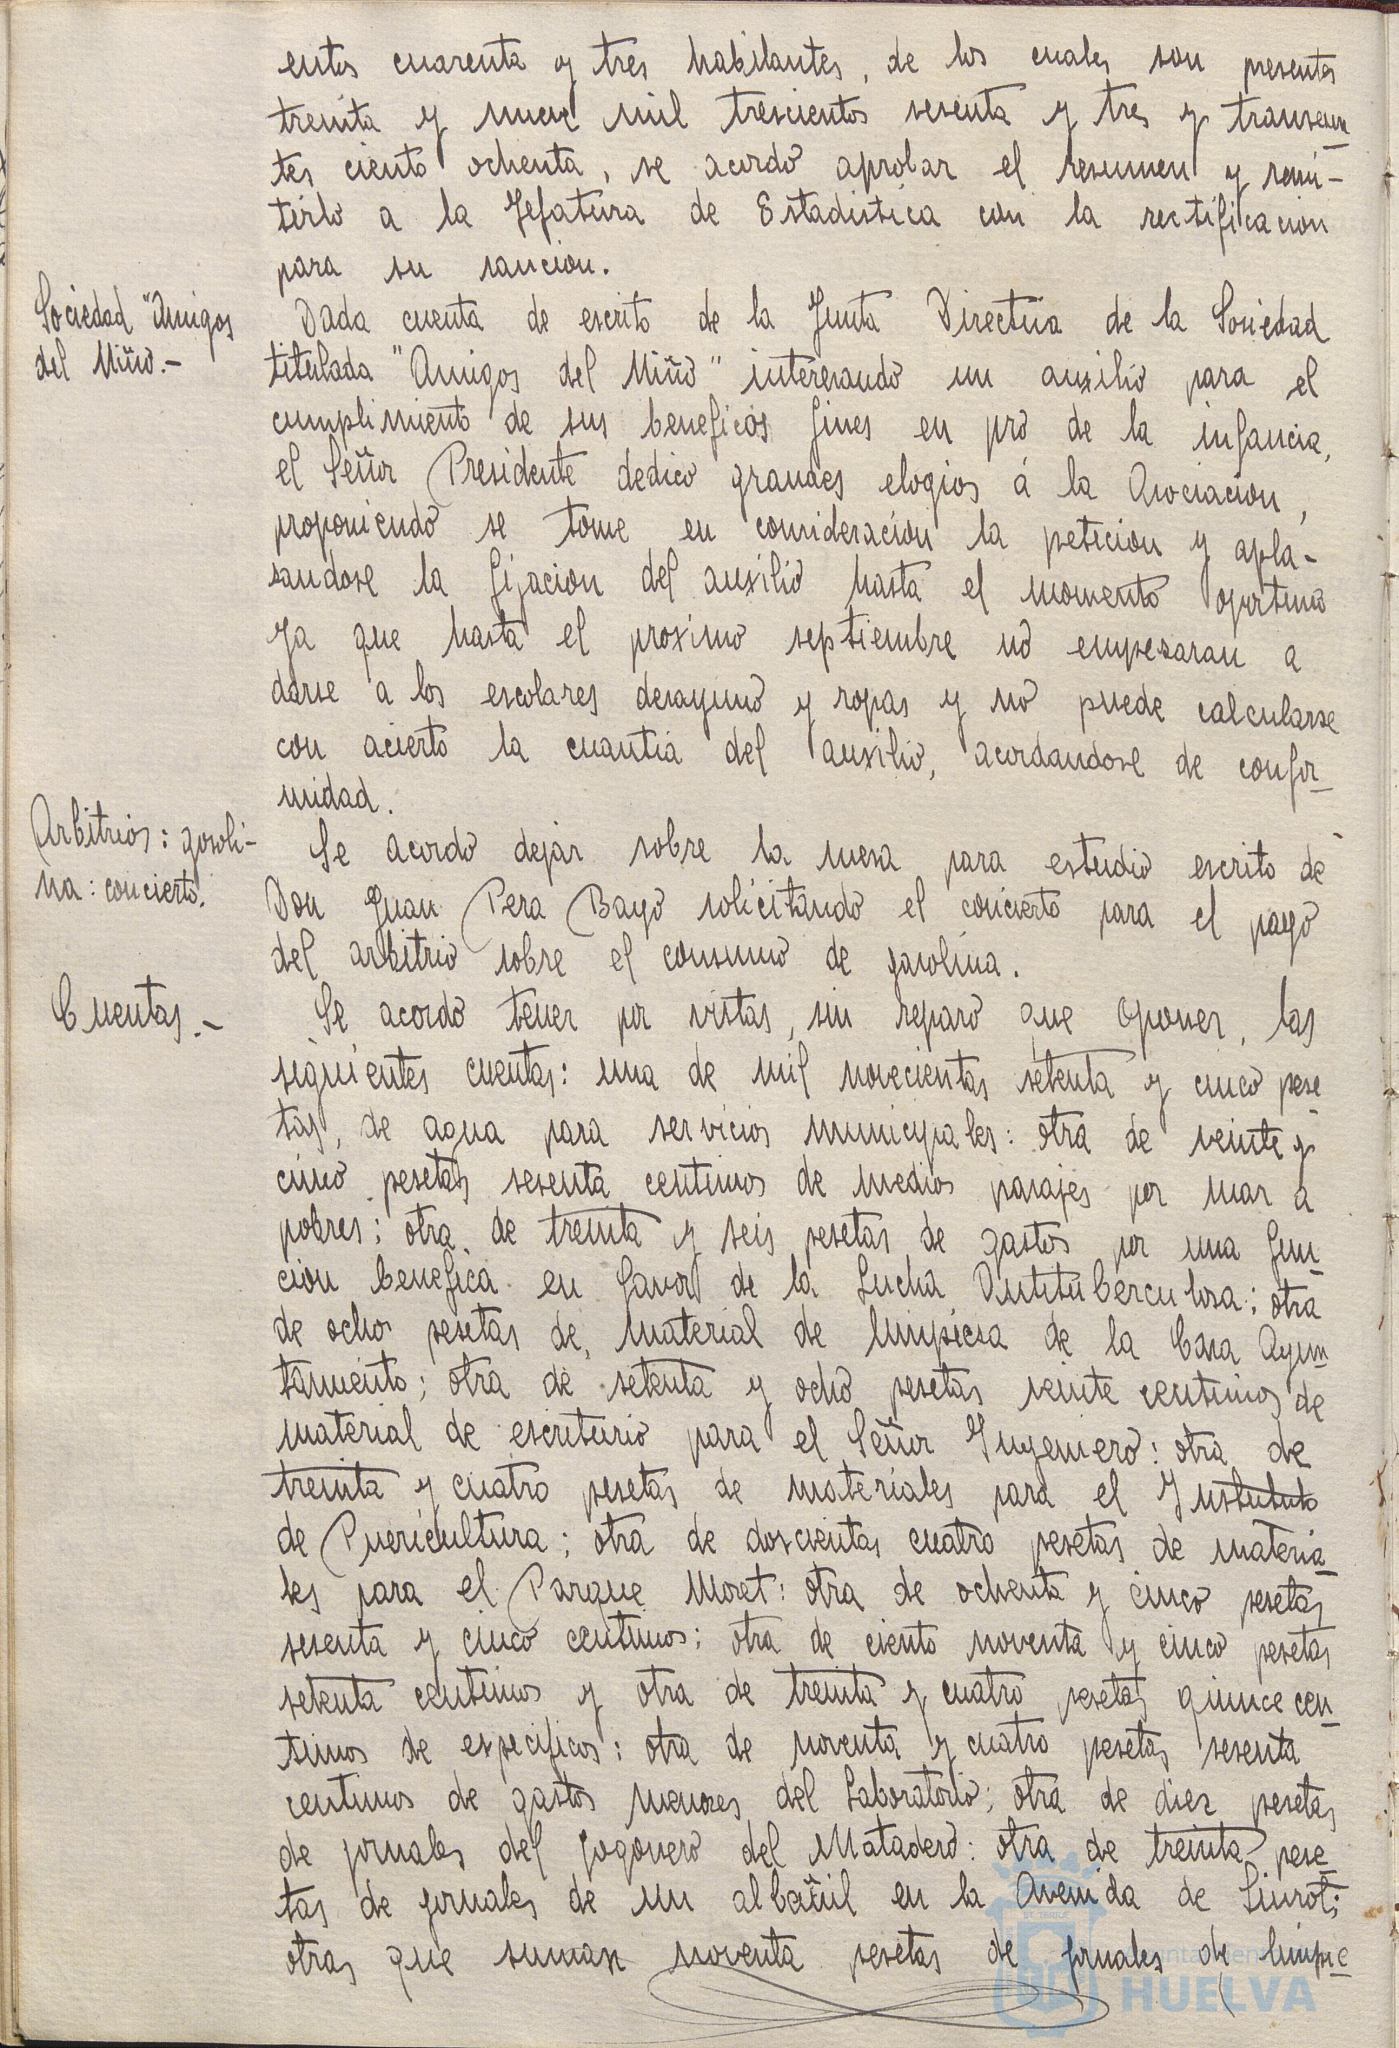 entos cuarenta y tres habilantes, de los cuales son presentes
treinta y nueve mil trescientos sesenta y tres y transeun
tes ciento ochenta, se acordó aprobar el resumen y remi-
tirlo a la Jefatura de Estadistica con la rectificacion
para su sancion.
Sociedad "Amigos
del Niño.-
Dada cuenta de escrito de la Junta Directiva de la Sociedad
titulada "Amigos del Niño" interesando un auxilio para el
cumplimiento de sus beneficos fines en pro de la infancia,
el Señor Presidente dedicó grandes elogios á la Asociacion,
proponiendo se tome en consideracion la peticion y apla-
sandose la fijacion del auxilio hasta el momento oportuno
ya que hasta el proximo septiembre no empezaran a
darse a los escolares desayuno y ropas y no puede calcularse
con acierto la cuantia del auxilio, acordandose de confor-
midad.
Arbitrios: gasoli-
na: concierto.
Se acordó dejar sobre la mesa para estudio escrito de
Don Juan Pera Bayo solicitando el concierto para el pago
del arbitrio sobre el consumo de gasolina.
Cuentas.-
Se acordó tener por vistas, sin reparo que oponer, las
siguientes cuentas: una de mil novecientas setenta y cinco pese
tas, de agua para servicios municipales: otra de veinte y
cinco pesetas sesenta centimos de medios pasajes por mar a
pobres; otra de treinta y seis pesetas de gastos por una fun-
cion benefica en favor de la Lucha Antituberculosa; otra
de ocho pesetas de material de limpiesa de la Casa Ayun
tamiento; otra de setenta y ocho pesetas veinte centimos de
material de escritorio para el Señor Ingeniero: otra de
treinta y cuatro pesetas de materiales para el Instituto
de Puericultura; otra de doscientas cuatro pesetas de materia-
les para el Parque Moret: otra de ochenta y cinco pesetas
sesenta y cinco centimos; otra de ciento noventa y cinco pesetas
setenta centimos y otra de treinta y cuatro pesetas quince cen-
timos de especificos: otra de noventa y cuatro pesetas sesenta
centimos de gastos menores del Laboratorio; otra de diez pesetas
de jornales del fogonero del Matadero: otra de treinta pese-
tas de jornales de un albañil en la Avenida de Siurot;
otras que suman noventa pesetas de jornales de limpie
Ayuntamiento
HUELVA